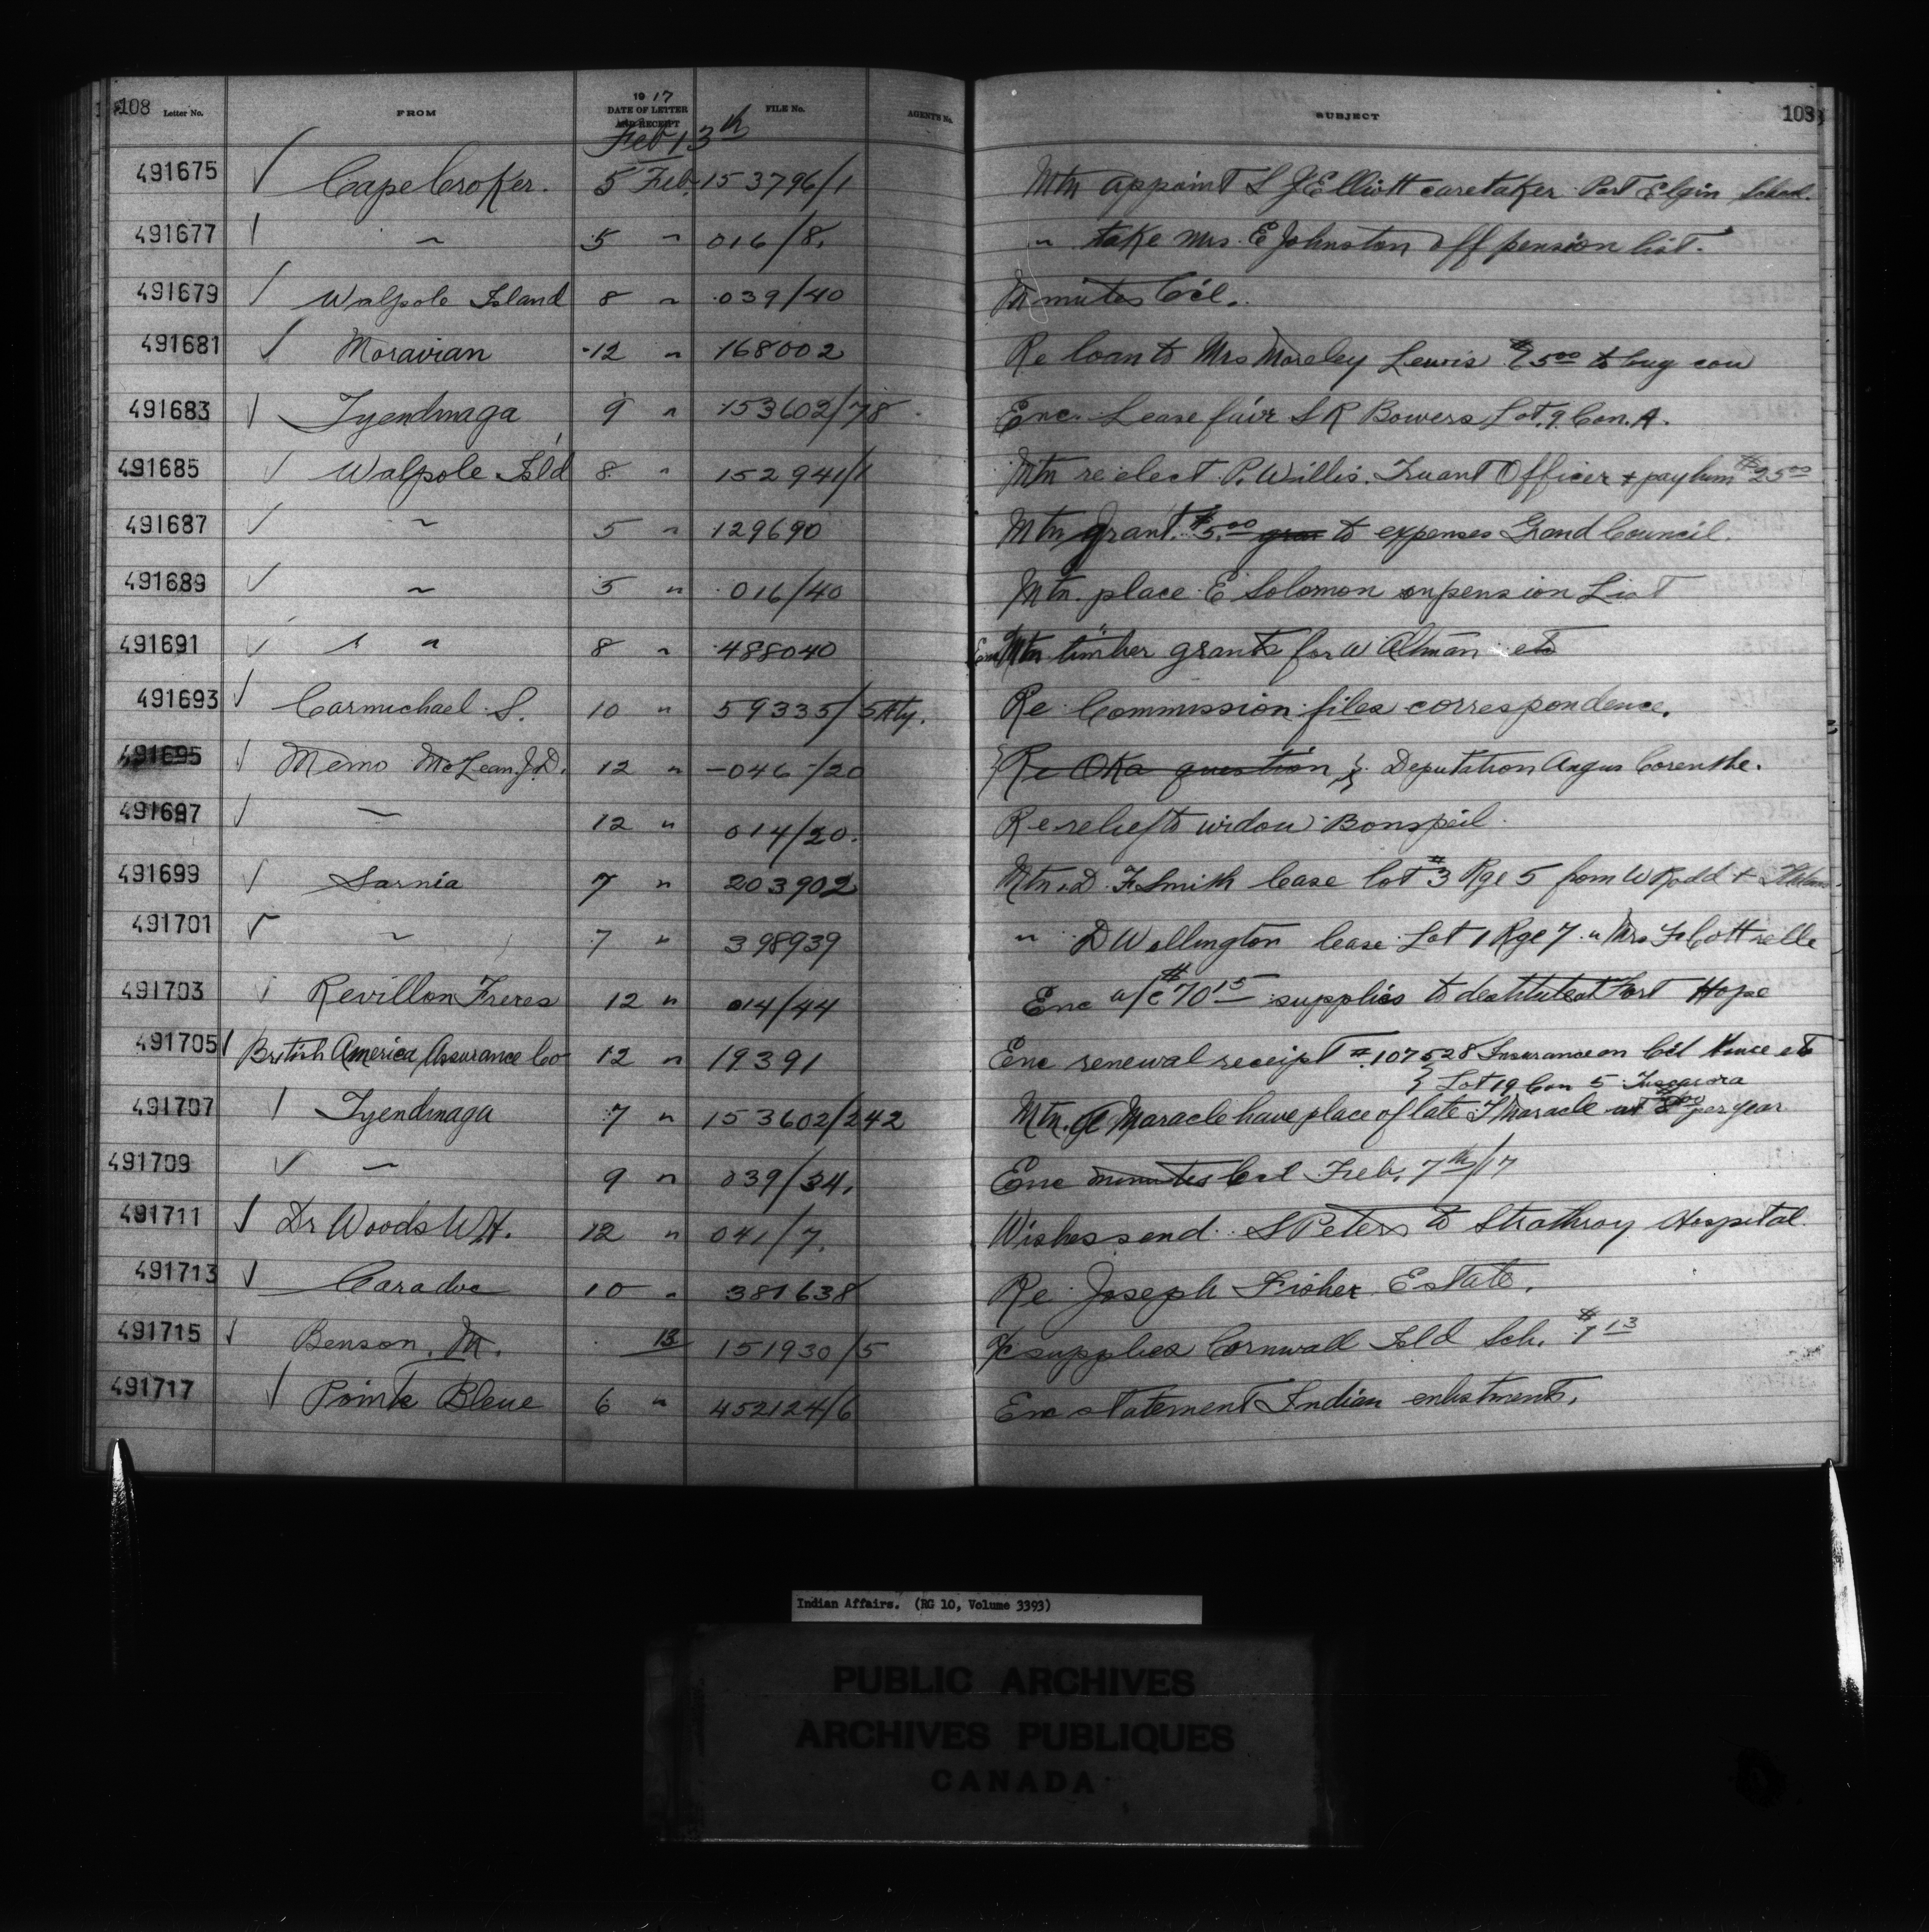 108 Letter No. FROM 1917 DATE OF LETTER AND RECEIPT FILE No. AGENTS No. SUBJECT 108
Feb 13th
491675 Cape Croker. 5 Feb. 153796/1 Mtn appoint S J Elliott caretaker Port Elgin School.
491677 " 5 " 016/8. " take Mrs. E Johnston off pension list.
491679 Walpole Island 8 " 039/40 Minutes C'cil.
491681 Moravian 12 " 168002 Re loan to Mrs Moreley Lewis $65.00 to buy cow
491683 Tyendinaga 9 " 153602/78 Enc. Lease fav'r S R Bowers Lot. 9. Con. A.
491685 Walpole Isl'd 8 " 152941/1 Mtn re elect P. Willis. Truant Officer + pay him $25.00
491687 " 5 " 129690 Mtn grant $5.00 to expenses Grand Council.
491689 " 5 " 016/40 Mtn. place E Solomon on pension List
491691 " " 8 " 488040 Mtn timber grants for W Altman etc
491693 Carmichael S. 10 " 59335/5 Aty. Re Commission files correspondence.
491695 Memo McLean J.D. 12 " 046/20 Re Oka question Deputation Angus Corenthe.
491697 " 12 " 014/20. Re relief to widow Bonspeil
491699 Sarnia 7 " 203902 Mtn. D F Smith lease lot #3 Rge 5 from W Rodd +
491701 " 7 " 398939 " D Wellington lease Lot 1 Rge 7 " Mrs F Cottrelle
491703 Revillon Freres 12 " 014/44 Enc a/c $70.15 supplies to destitute at Fort Hope
491705 British America Assurance Co 12 " 19391 Enc renewal receipt # 107528 Insurance on C'cil House etc
Lot 19 Con 5 Tuscarora
491707 Tyendinaga 7 " 153602/242 Mtn. A Maracle have place of late F Maracle at $8.00 per year
491709 " 9 " 039/34. Enc minutes C'cil Feb. 7th/17
491711 Dr Woods W H. 12 " 041/7. Wishes send S Peters to Strathroy Hospital.
491713 Caradoc 10 " 381638 Re Joseph Fisher Estate.
491715 Benson. M. 13 151930/5 a/c supplies Cornwall Isld Sch. $7.13
491717 Pointe Bleue 6 " 452124/6 Enc statement Indian enlistments.
Indian Affairs. (RG 10, Volume 3393)
PUBLIC ARCHIVES
ARCHIVES PUBLIQUES
CANADA